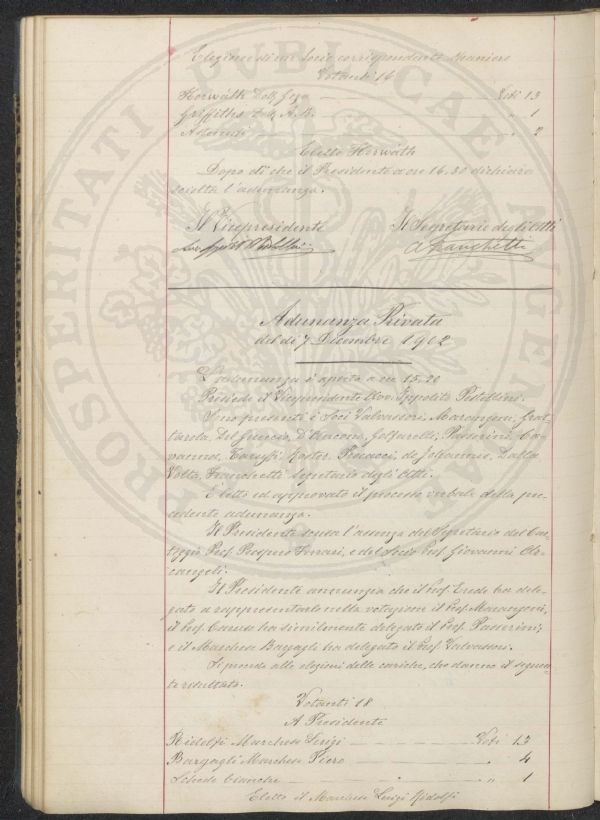 Elezione di un Socio corrispondente straniero
Votanti 16
Horwáth Dott. Geza Voti 13
Griffiths A. B. " 1
Astenuti " 2
Eletto Horwáth
Dopo di che il Presidente a ore 16.30 dichiara
sciolta l'adunanza.
Il Vicepresidente Il Segretario degli Atti
A Franchetti
Adunanza Privata
del dì 7 Dicembre 1902
L'adunanza è aperta a ore 15.20
Presiede il Vicepresidente Avv. Ippolito Pestellini.
Sono presenti i Soci Valvassori, Marangoni, Grat-
tarola, Del Greccio, D'Ancona, Golfarelli, Passerini, Ca-
vanna, Roster, Pucacci, de Johannis, Dalla
Volta, Franchetti Segretario degli Atti.
È letto ed approvato il processo verbale della pre-
cedente adunanza.
Il Presidente scusa l'assenza del Segretario del Car-
teggio Prof. Prospero Ferrari, e del Socio Prof. Giovanni Ar-
cangeli.
Il Presidente annunzia che il Prof. Erede ha dele-
gato a rappresentarlo nella votazione il Prof. Marangoni,
il Prof. Caruso ha similmente delegato il Prof. Passerini;
e il Marchese Bargagli ha delegato il Prof. Valvassori.
Si procede alle elezioni delle cariche, che danno il seguen-
te risultato.
Votanti 18
A Presidente
Ridolfi Marchese Luigi Voti 13
Bargagli Marchese Piero " 4
Schede bianche " 1
Eletto il Marchese Luigi Ridolfi
PROSPERITATI PUBLICAE AUGENDAE